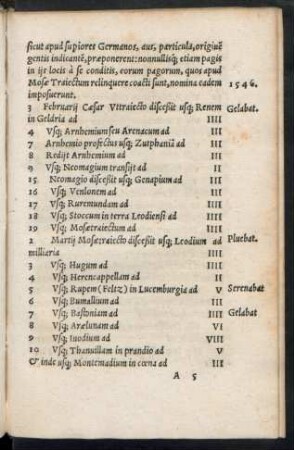 ficut apud superiores Germanos, aus, particula, origine
gentis indicante, præponerent: nonnullisque etiam pagis
in ijs locis à se conditis, eorum pagorum, quos apud
Mosæ Traiectum relinquere coacti sunt, nomina eadem
imposuerunt. 1546.
3 Februarij Cæsar Vltraiecto discessit usq; Renem Gelabat.
in Geldria ad IIII
4 Vsq; Arnhemium seu Arenacum ad IIII
7 Arnhemio profectus usq; Zutphaniā ad IIII
8 Redijt Arnhemium ad IIII
9 Vsq; Neomagium transijt ad II
15 Neomagio discessit usq; Genapium ad III
16 Vsq; Venlonem ad IIII
17 Vsq; Ruremundam ad IIII
18 Vsq; Stoccum in terra Leodiensi ad IIII
19 Vsq; Mosætraiectum ad IIII
2 Martij Mosætraiecto discessit usq; Leodium ad Pluebat.
milliaria IIII
3 Vsq; Hugum ad IIII
4 Vsq; Herencappellam ad IIII
5 Vsq; Rupem (Feltz) in Lucemburgia ad V Serenabat
6 Vsq; Bumallium ad III
7 Vsq; Bastoniam ad IIII Gelabat
8 Vsq; Arelunam ad VI
9 Vsq; Iuodium ad VIII
10 Vsq; Thanuillam in prandio ad V
& inde usq; Montemadium in cœna ad III
A 5